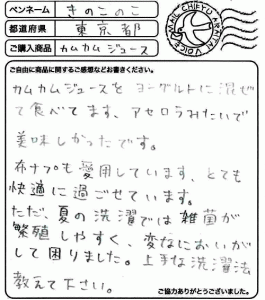 ペンネーム きのこのこ
都道府県 東京都
ご購入商品 カムカムジュース
MAIL CHIEYU ARAITA VOICE
ご自由に商品に関するご感想などお書きください。
カムカムジュースを ヨーグルトに混ぜ
て食べてます、アセロラみたいで
美味しかったです。
布ナプも愛用しています、とても
快適に過ごせています。
ただ、夏の洗濯では雑菌が
繁殖しやすく、変なにおいが
して困りました。上手な洗濯法
教えて下さい。
ご協力ありがとうございました。